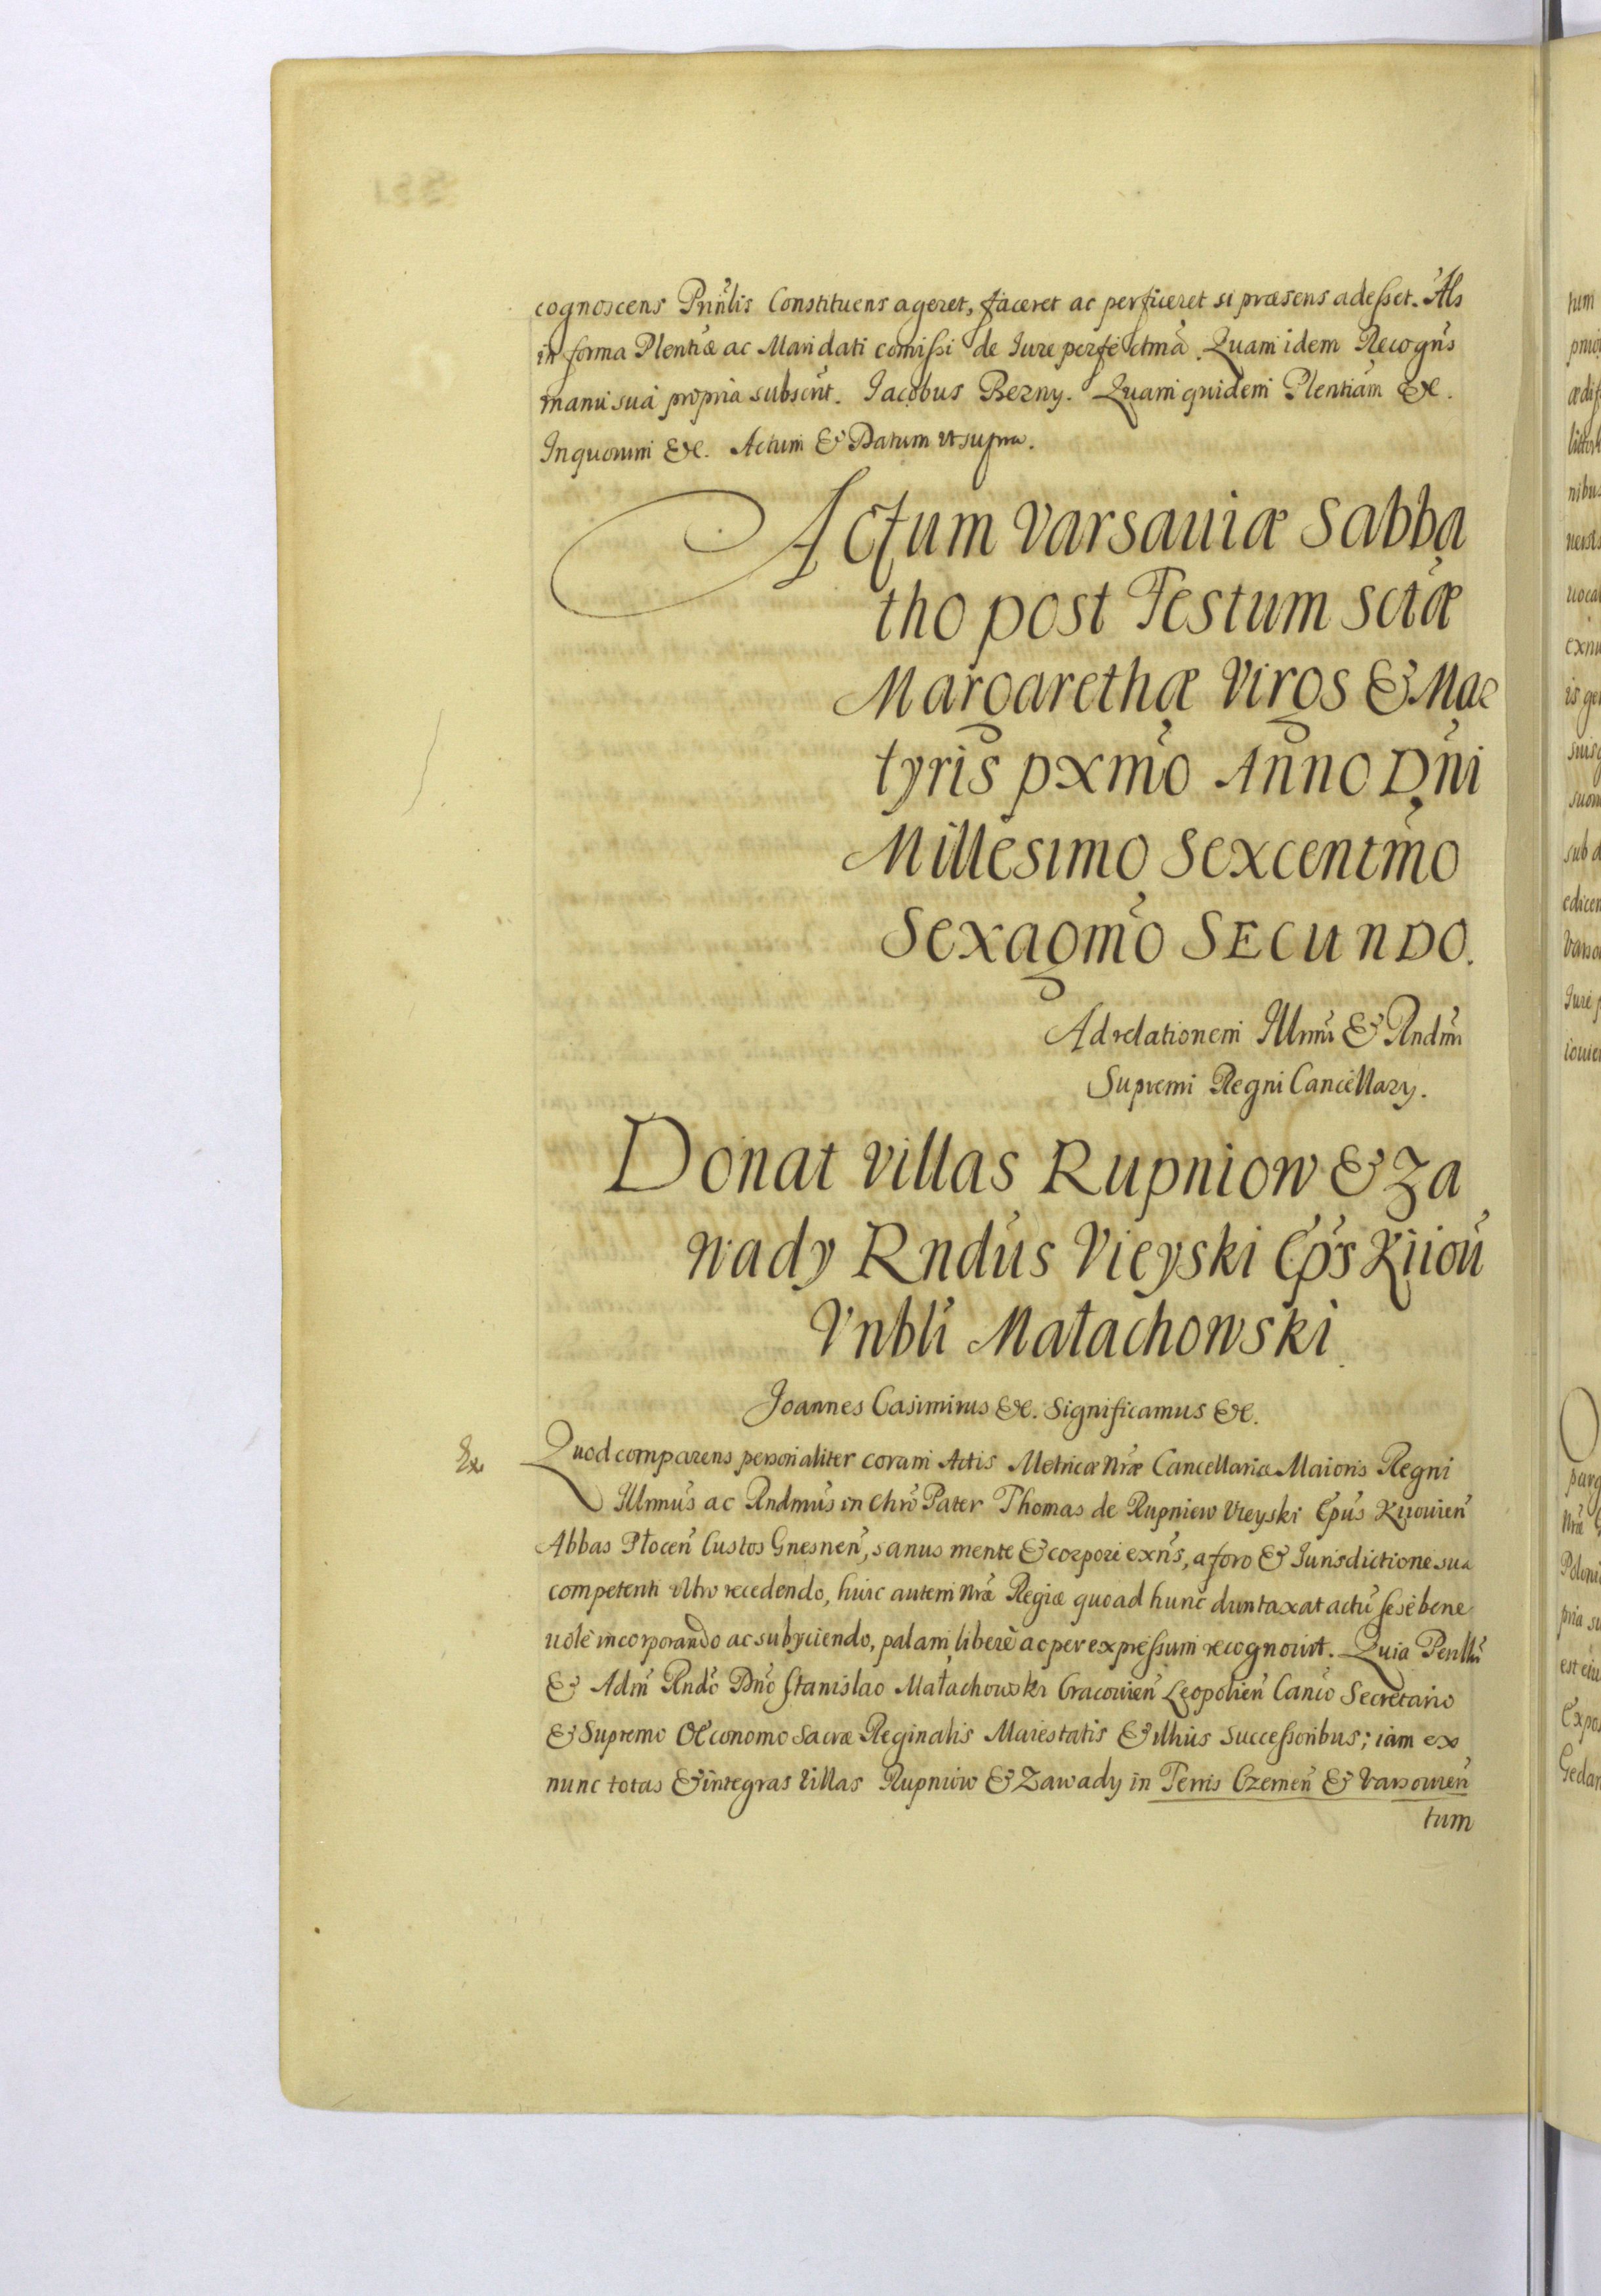 cognoscens Prinlis Constituens ageret, faceret ac perficeret si præsens adesset. Als
in forma Plentiæ ac Mandati comissi de Iure perfectmã. Quam idem Recogns
manu suâ propria subscrit. Iacobus Bezny. Quam quidem Plentiam &c.
In quorum &c. Actum & Datum ut supra.
Actum Varsauiæ Sabba
tho post Festum Sctæ
Margarethæ Virgs & Mar
tyris pxmo Anno Dni
Millesimo Sexcentmo
Sexagmo Secundo.
Ad relationem Illmi & Rndmi
Supremi Regni Cancellary.
Donat villas Rupniow & Za
wady Rndus Vieyski Eps Kiiou
Vnbli Małachowski
Joannes Casimirus &c. Significamus &c.
Ex
Quod comparens personaliter coram Actis Metricæ Nræ Cancellariæ Maioris Regni
Illmus ac Rndmus in Chro Pater Thomas de Rupniew Vieyski Epus Kiiouien
Abbas Płocen Custos Gnesnen, sanus mente & corpore exns, a foro & Iurisdictione sua
competenti ultro recedendo, huic autem nræ Regiæ quoad hunc duntaxat actu sese bene
uole incorporando ac subyciendo, palam libere ac per expressum recognouit. Quia Perilli
& Adm Rndo Dno Stanislao Małachowski Cracouien Leopolien Canco Secretario
& Supremo Oeconomo Sacræ Reginalis Maiestatis & illius Successoribus; iam ex
nunc totas & integras Villas Rupniow & Zawady in Terris Czernen & Varsouien
tum